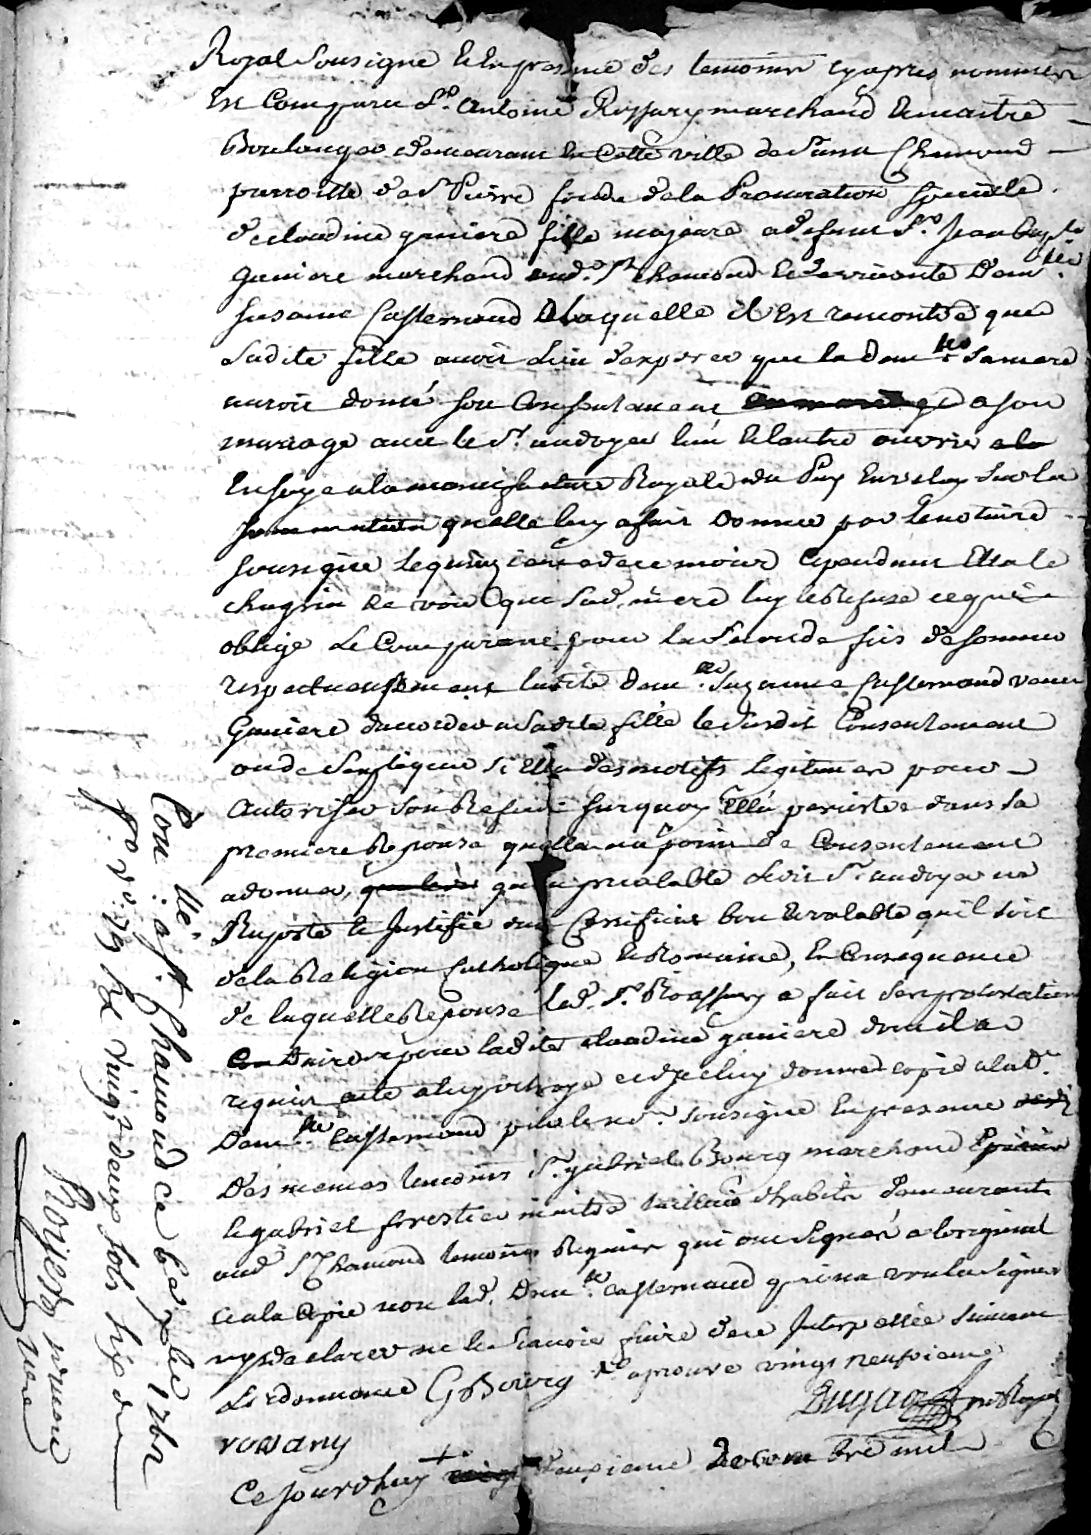 Royal Sousigné et en presance des temoins cy apres nommes
Est Comparu Sr. Antoine Roassany marchand et maitre
Boulanger demeurant En Cette ville de Saint Chamond
parroisse de St Pierre fondé de la Procuration specialle
de claudine ganiere fille majeure a defunt Sr. Jean bapte
ganiere marchand aud. St chamond et survivante Damlle
susanne Casternaud a laquelle il Est remontré que
Sadite fille auroit lieu d'esperer que la damlle sa mere
auroit donné son Consentement a son
mariage avec le Sr. audoyer l'un et lautre ouvrier
En soye a la manufacture Royale du Puy En velay sur la
sommation quelle luy a fait donner par le notaire
sousigné le quinzieme de ce mois Cependant Ella le
chagrin de voir que Sad. mere luy le Refuse ce qui
oblige le Comparant pour la seconde fois de sommer
respectueusement ladite damlle Suzanne Casternaud veuve
Ganiere daccorder a sadite fille le susdit Consentement
ou de sexpliquer si Ella des motifs legitimes pour
autoriser son Refus surquoy Ella persisté dans sa
premiere Reponse quella na point de Consentement
a donner, qu'au prealable ledit Sr. audoyer ne
Raporte et Justifie d'un Certificat bon et valable quil soit
de la Religion Catholique et Romaine, En Consequence
de laquelle Reponse led. Sr. Roassany a fait ses protestations
Contraires pour ladite claudine ganiere dont il a
requis acte a luy octroyé et d'icelluy donné copie a lad.
Damlle Casternaud par le no.re sousigné En presance
Des memes temoins Sr. gabriel Bourg marchand
et gabriel forestier maitre tailleur d'habits demeurants
aud. St Chamond temoins Requis qui ont signés a loriginal
et a la Copie non lad. Damlle Casternaud qui na voulu signer
ny declarer ne le scavoir faire de ce Interpellée suivant
Lordonnance GBourg aprouvé vingt neufvieme
Dugad no.re Royal
roasany
Ce jourdhuy deuxieme decembre mil
Conlle. a St. Chamond ce 6e xbre 1762
Rx vingt deux sols six d.